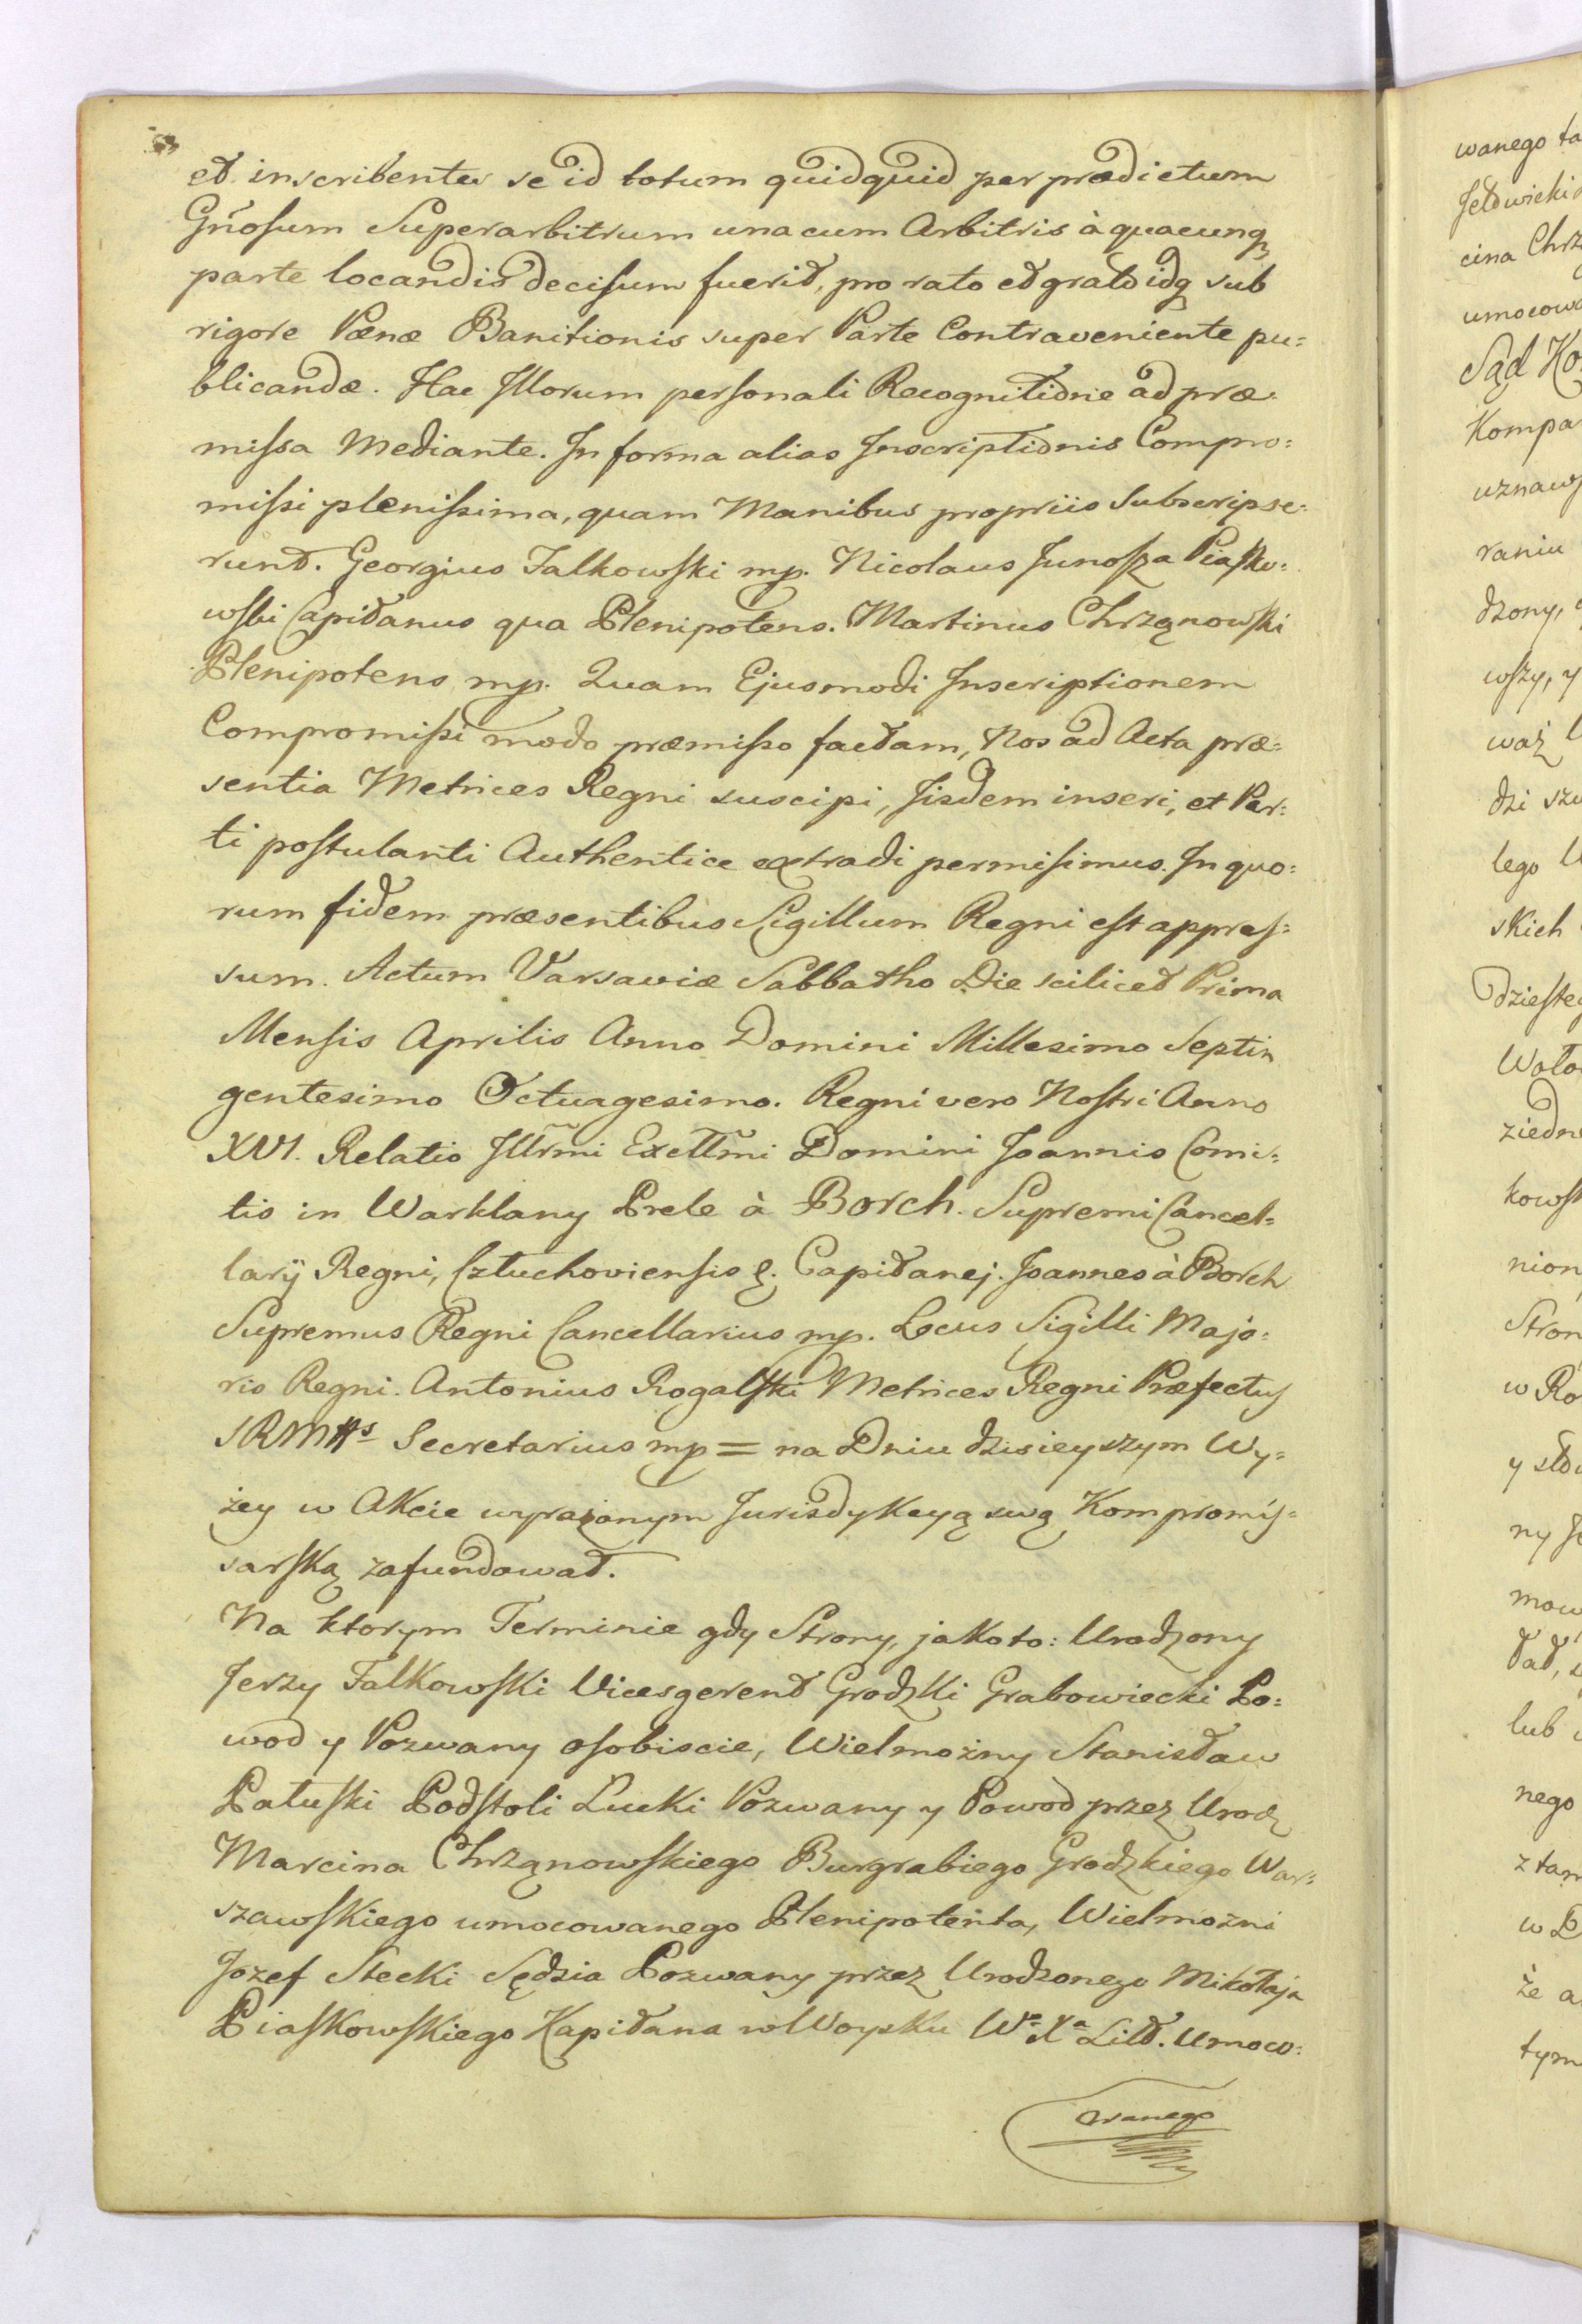 et inscribentes se id totum quidquid per prædictum
Gñosum Superarbitrum una cum Arbitris à quacunq
parte locandis decisum fuerit, pro rato et grato idq sub
rigore Pænæ Banitionis super Parte Contraveniente pu=
blicandæ. Hac Illorum personali Recognitione ad præ=
missa Mediante. In forma alias Inscriptionis Compro=
missi plenissima, quam Manibus propriis Subscripse=
runt. Georgius Falkowski mp. Nicolaus Junosza Piasko=
wski Capitanus qua Plenipotens. Martinus Chrząnowski
Plenipotens mp. Quam Ejusmodi Inscriptionem
Compromissi modo præmisso factam, Nos ad Acta præ=
sentia Metrices Regni suscipi, Iisdem inseri, et Par=
ti postulanti Authentice extradi permisimus. In quo=
rum fidem præsentibus Sigillum Regni est appres=
sum. Actum Varsaviæ Sabbatho Die scilicet Prima
Mensis Aprilis Anno Domini Millesimo Septin
gentesimo Octuagesimo. Regni vero Nostri Anno
XVI. Relatio Illrmi Excellmi Domini Joannis Comi=
tis in Warklany Prele à Borch. Supremi Cancel=
larij Regni, Cztuchoviensis &. Capitanej. Joannes à Borch
Supremus Regni Cancellarius mp. Locus Sigilli Majo=
ris Regni. Antonius Rogalski Metrices Regni Præfectus
SRMtis Secretarius mp = na Dniu dzisieyszym Wy=
żey w Akcie wyrażonym Jurisdykcyą swą Kompromis=
sarską zafundował.
Na ktorym Terminie gdy Strony, jako to: Urodzony
Jerzy Falkowski Vicesgerent Grodzki Grabowiecki Po=
wod y Pozwany osobiscie, Wielmożny Stanisław
Łatuski Podstoli Łucki Pozwany y Powod przez Urodz
Marcina Chrząnowskiego Burgrabiego Grodzkiego War=
szawskiego umocowanego Plenipotenta, Wielmożni
Jozef Stecki Sędzia Pozwany przez Urodzonego Mikołaja
Piaskowskiego Kapitana w Woysku Wo Xa Litt. Umoco=
wanego
wanego ta
cina Chrz
umocowa
Sąd Ko
Kompa
uznaws
raniu
dzony,
wszy, y
waż
dzi
lego
skich
dzieste
Woło
ziedn
kowsk
nion
Stron
w Ro
y
ny
mow
lub
nego
z tam
w
że a
tym